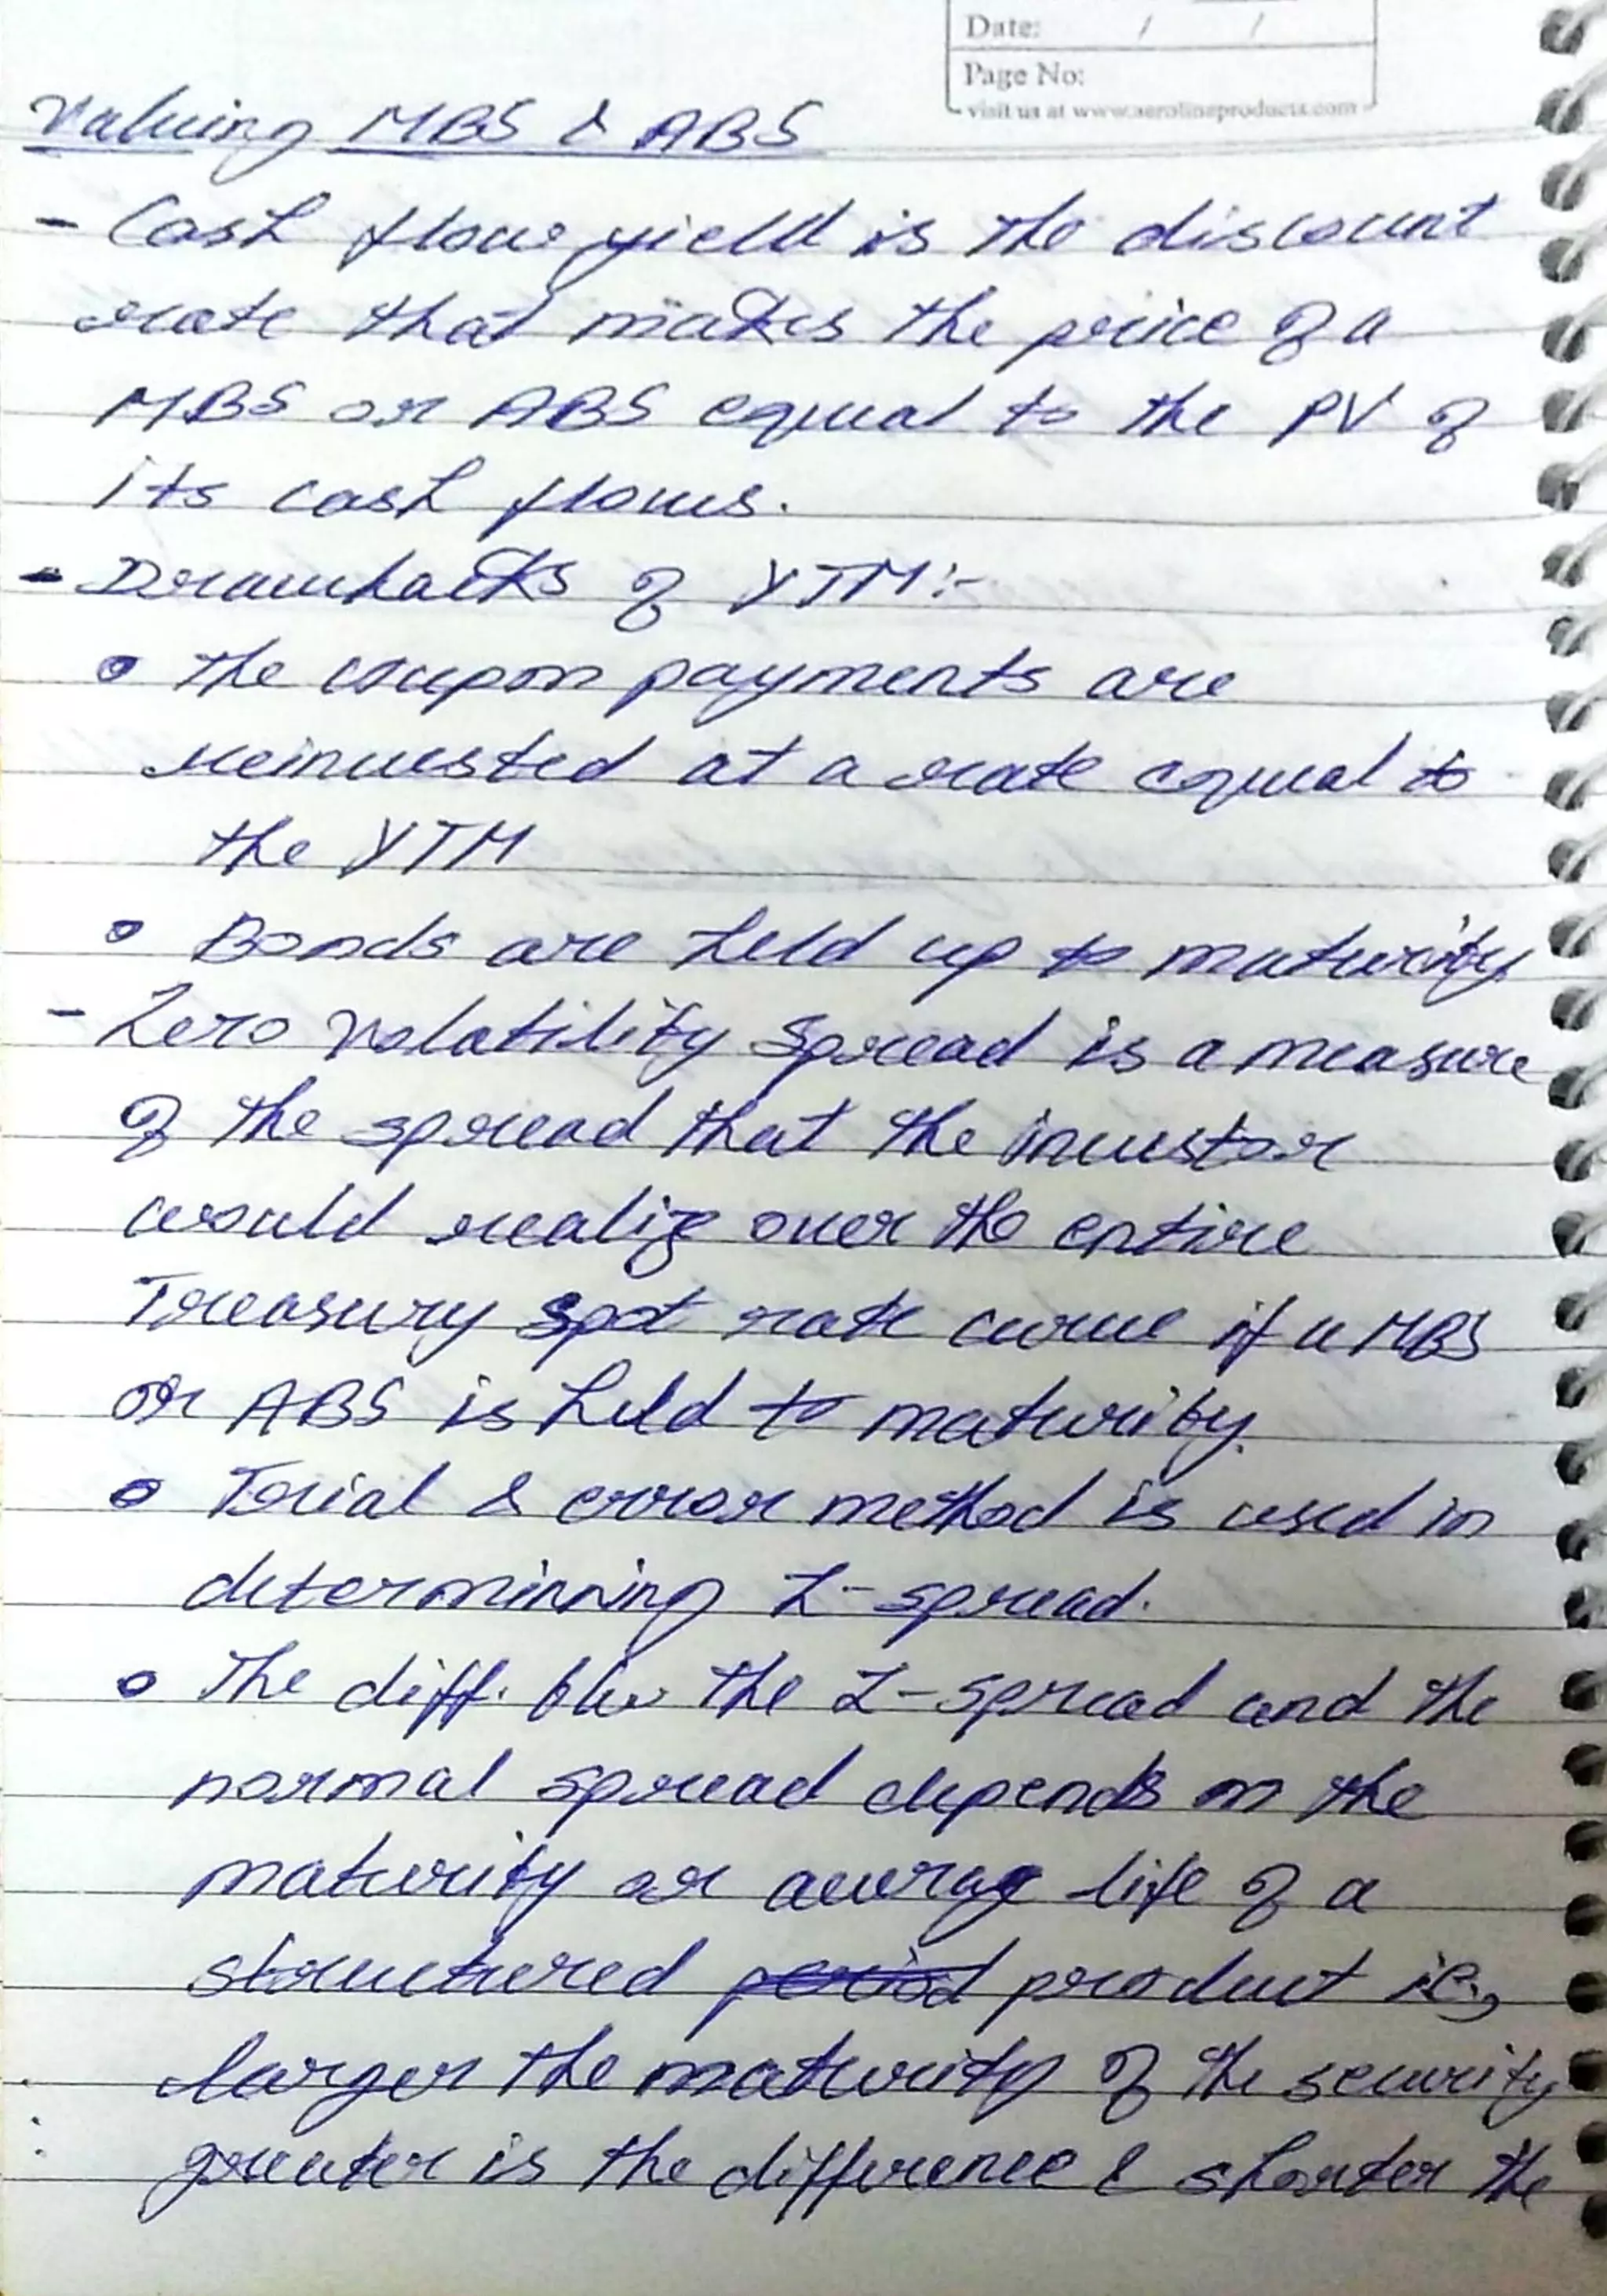 Date: / /
Page No:
visit us at www.aerolineproducts.com
Valuing MBS & ABS
- Cash flow yield is the discount
rate that makes the price of a
MBS or ABS equal to the PV of
its cash flows.
- Drawbacks of YTM:-
• The coupon payments are
reinvested at a rate equal to
the YTM
• Bonds are held up to maturity
- Zero Volatility Spread is a measure
of the spread that the investor
would realize over the entire
Treasury spot rate curve if a MBS
or ABS is held to maturity.
• Trial & error method is used in
determinning Z-spread.
• The diff. b/w the Z-spread and the
normal spread depends on the
maturity or average life of a
structured period product ie,
larger the maturity of the security
greater is the difference & shorter the